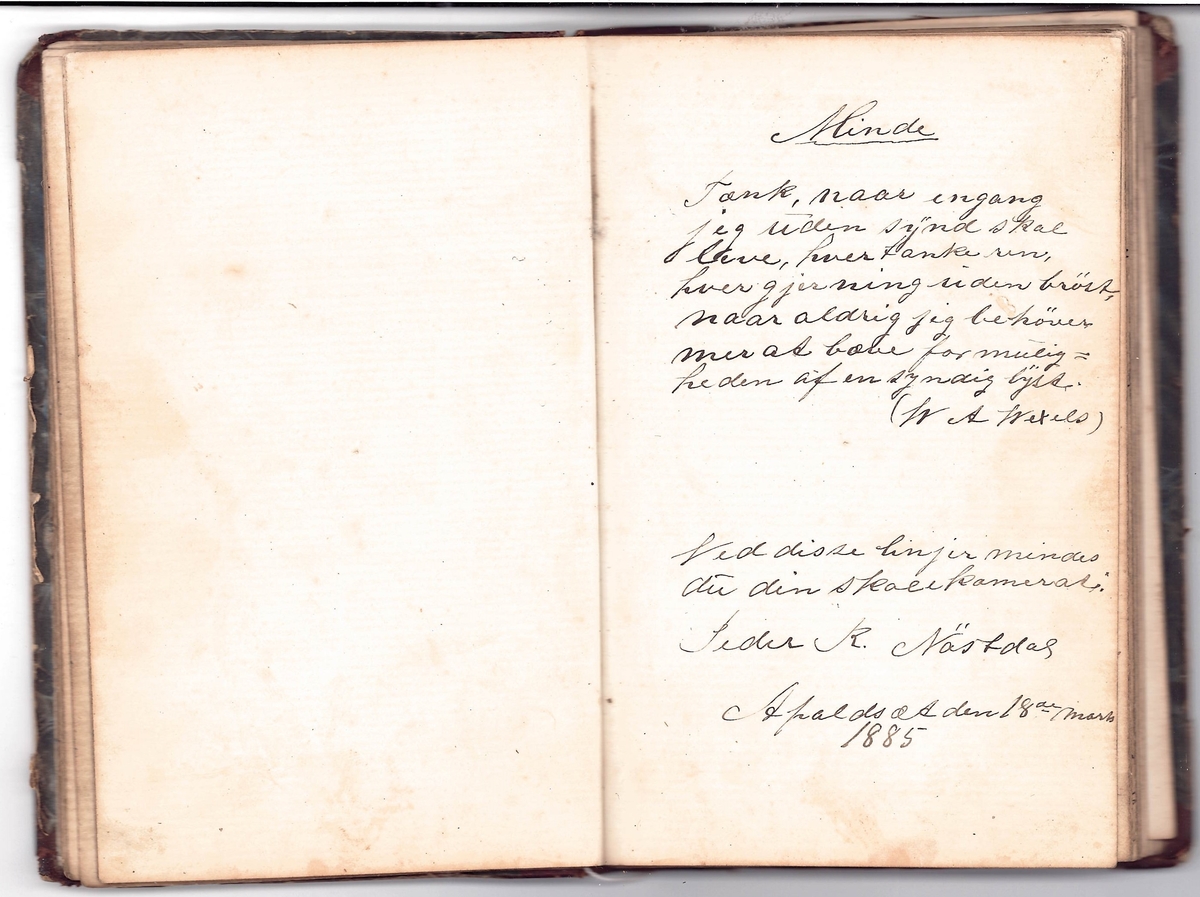 Minde
Tænk, naar engang
jeg uden synd skal
leve, hver tanke ren,
hver gjerning uden bröst,
naar aldrig jeg behöver
mer at bæve for mulig=
heden af en syndig lyst.
(W A Wexels)
Ved disse linjer mindes
du din skolekamerat:
Peder R. Nöstdal
Apaldsæt den 18de marts
1885